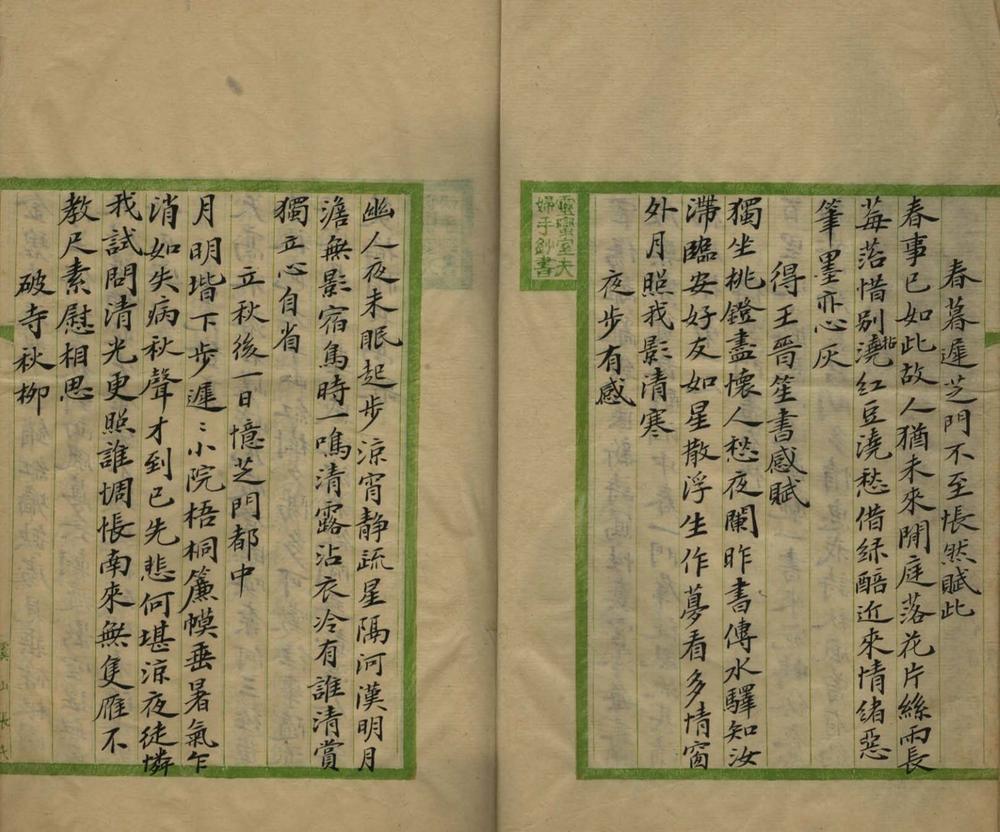 春暮遲芝門不至悵然賦此
春事已如此故人猶未來閒庭落花片絲雨長
莓苔惜別拈澆紅豆澆愁借綠醅近來情緒惡
筆墨亦心灰
得王晉笙書感賦
獨坐桃鐙盡懷人愁夜闌昨書傳水驛知汝
滯臨安好友如星散浮生作夢看多情窗
外月照我影清寒
夜步有感
靈蠻室夫
婦手鈔書
幽人夜未眠起步涼宵靜疏星隔河漢明月
澹無影宿鳥時一鳴清露沾衣冷有誰清賞
獨立心自省
立秋後一日憶芝門都中
月明堦下步遲〻小院梧桐簾幙垂暑氣乍
消如失病秋聲才到已先悲何堪涼夜徒憐
我試問清光更照誰惆悵南來無隻雁不
教尺素慰相思
破寺秋柳